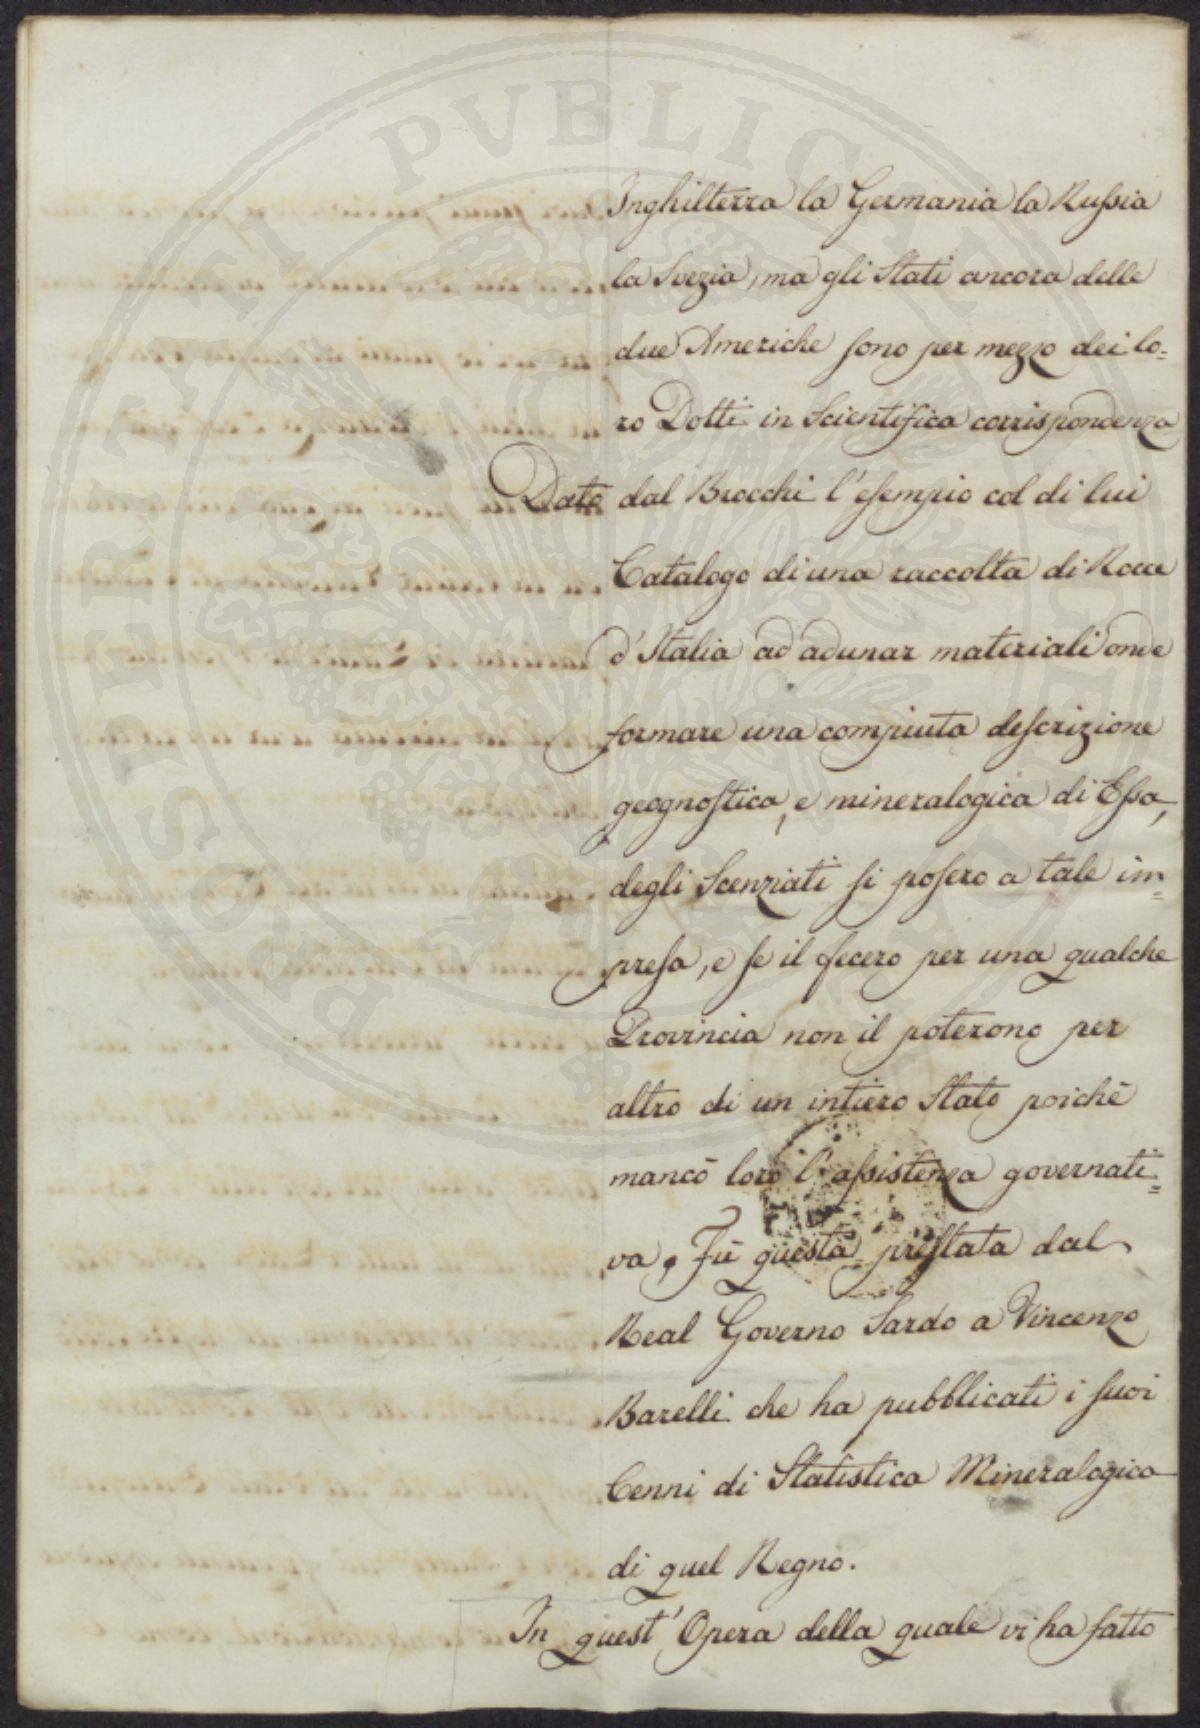 Inghilterra la Germania la Rußia
la Svezia, ma gli Stati ancora delle
due Americhe sono per mezzo dei lo=
ro Dotti in Scientifica corrispondenza
Dato dal Brocchi l'esempio col di lui
Catalogo di una raccolta di Rocce
d'Italia ad adunar materiali onde
formare una compiuta descrizione
geognostica, e mineralogica di Eßa,
degli Scenziati si posero a tale im=
presa, e se il fecero per una qualche
Provincia non il poterono per
altro di un intiero Stato poichè
mancò loro l'aßistenza governati=
va. Fù questa prestata dal
Real Governo Sardo a Vincenzo
Barelli che ha pubblicati i suoi
Cenni di Statistica Mineralogica
di quel Regno.
In quest'Opera della quale vi ha fatto
PROSPERITATI PVBLICAE